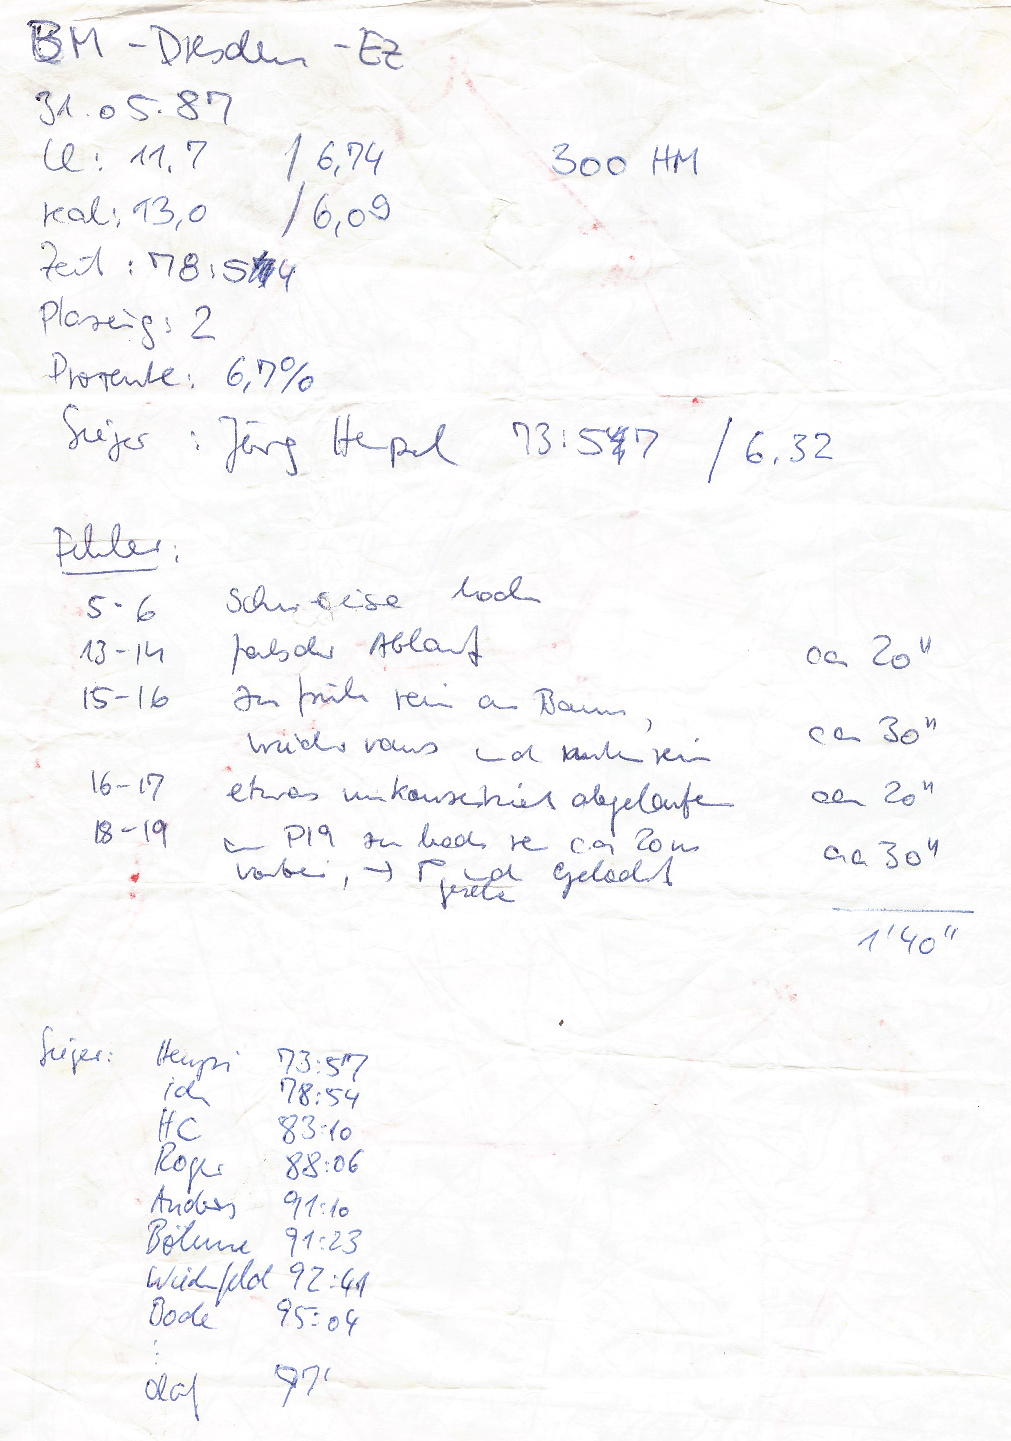 BM - Dresden - EZ
31.05.87
LL: 11,7 / 6,74 300 HM
real: 13,0 / 6,09
Zeit: 78:54
Plazeig: 2
Prozente: 6,7%
Sieger: Jörg Hempel 73:57 / 6.32
Fehler:
5-6 Schneise hoch
13-14 falscher Ablauf ca 20"
15-16 zu früh rein am Baum,
wieder raus und rein ca 30"
16-17 etwas unkonzentriert abgelaufen ca 20"
18-19 P19 zu hoch ca 20m
vorbei, → und gelocht ca 30"
1'40"
Sieger: Hempi 73:57
ich 78:54
HC 83:10
Roger 88:06
Andreas 91:10
Böhme 91:23
Wiedenfeld 92:41
Bode 95:04
⋮
Olaf 97'